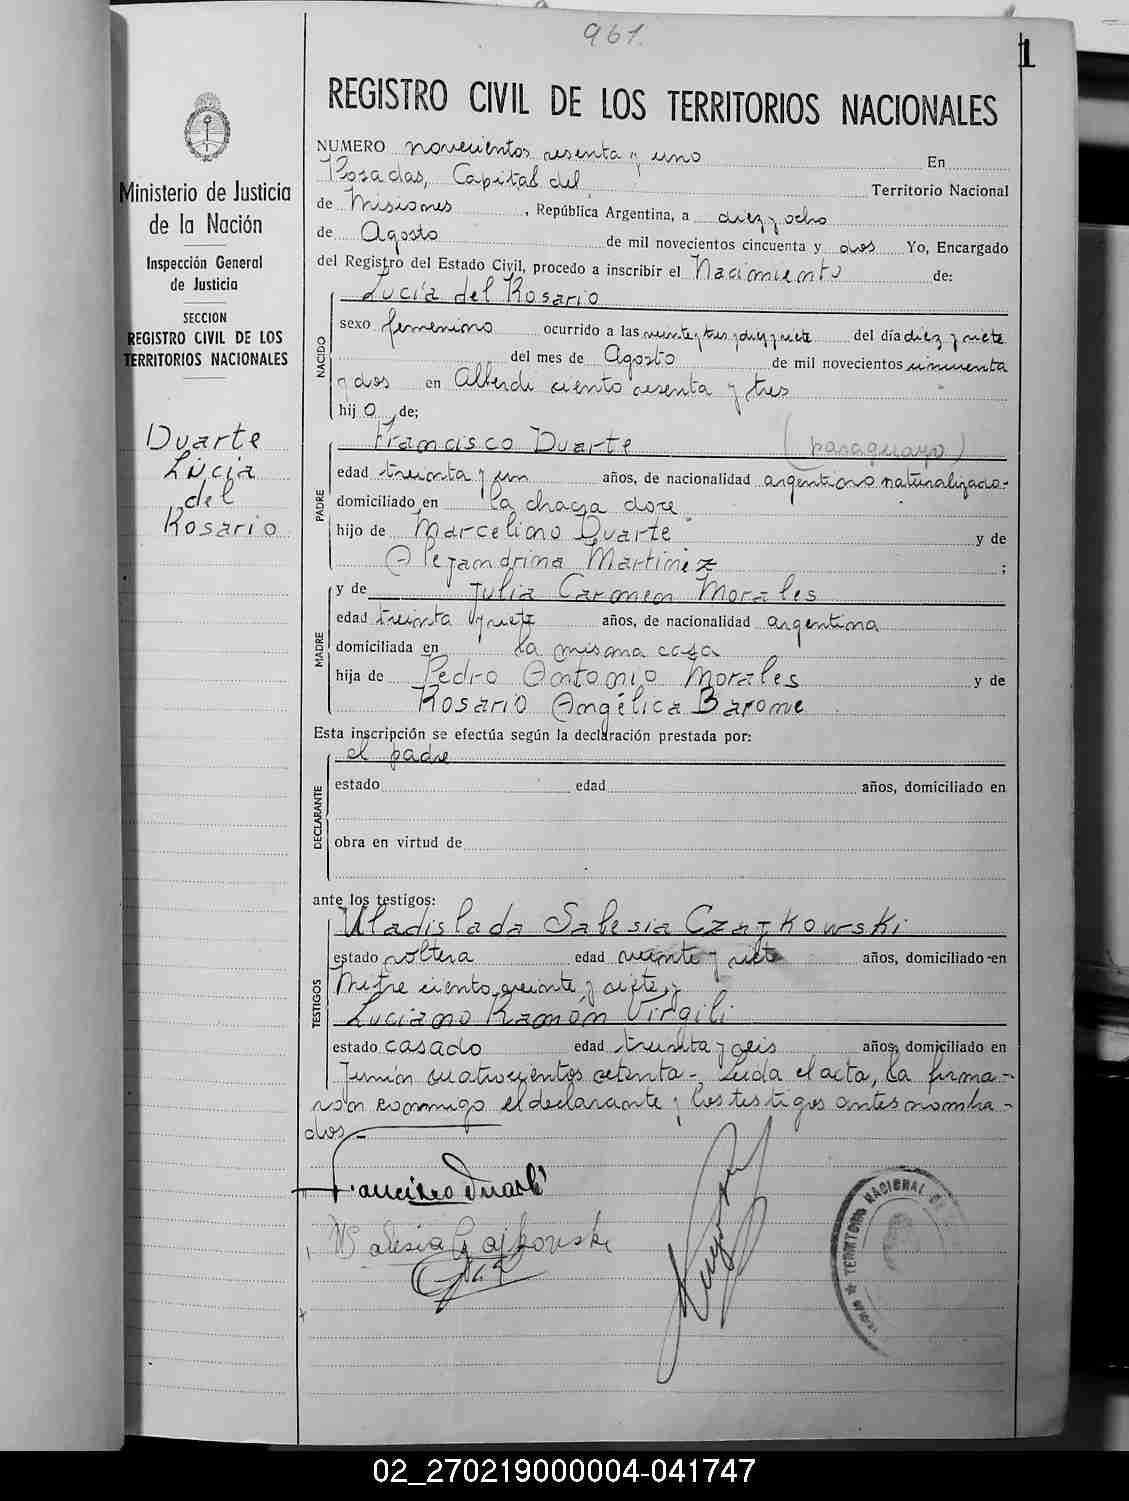 961.
1
REGISTRO CIVIL DE LOS TERRITORIOS NACIONALES
NUMERO novecientos sesenta y uno En
Posadas, Capital del Territorio Nacional
de Misiones, República Argentina, a diez y ocho
de Agosto de mil novecientos cincuenta y dos Yo, Encargado
del Registro del Estado Civil, procedo a inscribir el Nacimiento de:
Lucía del Rosario
NACIDO
sexo femenino ocurrido a las veinte y tres y diez y siete del día diez y siete
del mes de Agosto de mil novecientos cincuenta
y dos en Alberdi ciento sesenta y tres
hij o, de;
PADRE
Francisco Duarte (paraguayo)
edad treinta y un años, de nacionalidad argentino naturalizado-
domiciliado en la chacra doce
hijo de Marcelino Duarte y de
Alejandrina Martinez ;
MADRE
y de Julia Carmen Morales
edad treinta y siete años, de nacionalidad argentina
domiciliada en la misma casa
hija de Pedro Antonio Morales y de
Rosario Angélica Barone
Esta inscripción se efectúa según la declaración prestada por:
DECLARANTE
el padre
estado edad años, domiciliado en
obra en virtud de
ante los testigos:
TESTIGOS
Uladislada Salesia Czajkowski
estado soltera edad veinte y siete años, domiciliado en
Mitre ciento veinte y siete, y
Luciano Ramón Virgili
estado casado edad treinta y seis años, domiciliado en
Junín cuatrocientos setenta-. Leida el acta, la firma-
ron conmigo el declarante y los testigos antes nombra-
dos.-
Francisco Duarte
Salesia Czajkowski
TERRITORIO NACIONAL DE
Ministerio de Justicia
de la Nación
Inspección General
de Justicia
SECCION
REGISTRO CIVIL DE LOS
TERRITORIOS NACIONALES
Duarte
Lucia
del
Rosario
02_270219000004-041747